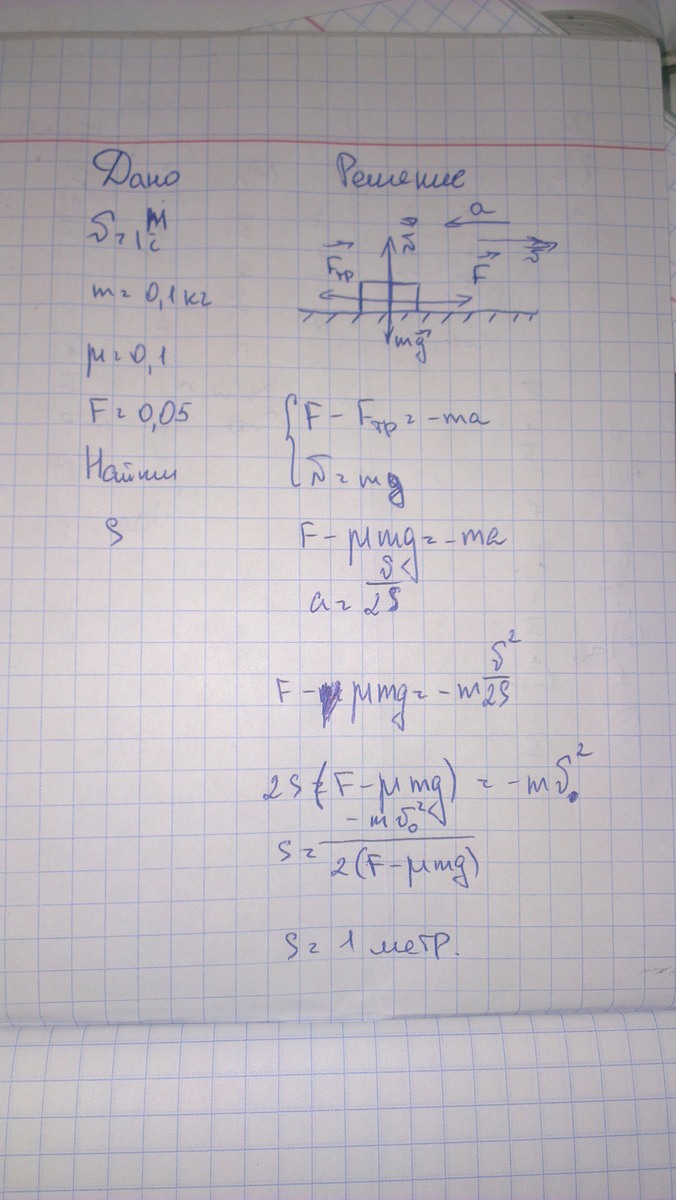 Дано
Решение
υ = 1 м/с
m = 0,1 кг
μ = 0,1
F = 0,05
Найти
S
a
N
υ
Fтр
F
mg
{ F - Fтр = -ma
N = mg
F - μmg = -ma
a = υ²/2S
F - μmg = -m υ²/2S
2S (F - μmg) = -mυ₀²
S = -mυ₀² / 2(F - μmg)
S = 1 метр.